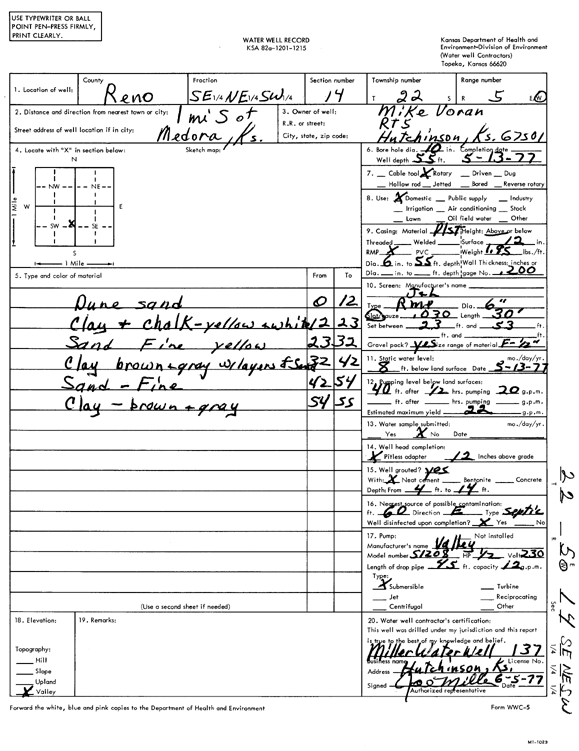 USE TYPEWRITER OR BALL
POINT PEN-PRESS FIRMLY,
PRINT CLEARLY.
WATER WELL RECORD
KSA 82a-1201-1215
Kansas Department of Health and
Environment-Division of Environment
(Water well Contractors)
Topeka, Kansas 66620
1. Location of well:
County
Reno
Fraction
SE 1/4 NE 1/4 SW 1/4
Section number
14
Township number
T 22 S
Range number
R 5 E/W
2. Distance and direction from nearest town or city: 1 mi S of
Street address of well location if in city: Medora, Ks.
3. Owner of well:
R.R. or street:
City, state, zip code:
Mike Voran
RT5
Hutchinson, Ks. 67501
4. Locate with "X" in section below:
Sketch map:
N
NW
NE
W
E
SW
X
SE
S
1 Mile
1 Mile
6. Bore hole dia. 10 in. Completion date
Well depth 55 ft. 5-13-77
7. Cable tool X Rotary Driven Dug
Hollow rod Jetted Bored Reverse rotary
8. Use: X Domestic Public supply Industry
Irrigation Air conditioning Stock
Lawn Oil field water Other
9. Casing: Material Plst Height: Above or below
Threaded Welded Surface 12 in.
RMP X PVC Weight 1.95 lbs./ft.
Dia. 6 in. to 55 ft. depth Wall Thickness: inches or
Dia. in. to ft. depth gage No. .200
5. Type and color of material
From
To
Dune sand 0 12
Clay + chalk-yellow + white 12 23
Sand Fine yellow 23 32
Clay brown+gray w/layers f sand 32 42
Sand - Fine 42 54
Clay - brown + gray 54 55
(Use a second sheet if needed)
10. Screen: Manufacturer's name
Type RMP Dia. 6"
Slot/gauze .030 Length 30'
Set between 23 ft. and 53 ft.
ft. and ft.
Gravel pack? yes Size range of material F-1/2"
11. Static water level: mo./day/yr.
8 ft. below land surface Date 5-13-77
12. Pumping level below land surfaces:
40 ft. after 1/2 hrs. pumping 20 g.p.m.
ft. after hrs. pumping g.p.m.
Estimated maximum yield 22 g.p.m.
13. Water sample submitted: mo./day/yr.
Yes X No Date
14. Well head completion:
X Pitless adapter 12 Inches above grade
15. Well grouted? yes
With: X Neat cement Bentonite Concrete
Depth: From 4 ft. to 14 ft.
16. Nearest source of possible contamination:
ft. 60 Direction E Type Septic
Well disinfected upon completion? X Yes No
17. Pump: Not installed
Manufacturer's name Valley
Model number S1208 HP 1/2 Volts 230
Length of drop pipe 45 ft. capacity 12 g.p.m.
Type:
X Submersible Turbine
Jet Reciprocating
Centrifugal Other
18. Elevation:
19. Remarks:
Topography:
Hill
Slope
Upland
X Valley
20. Water well contractor's certification:
This well was drilled under my jurisdiction and this report
is true to the best of my knowledge and belief.
Miller Water Well 137
Business name License No.
Address Hutchinson, Ks.
Signed Joe Miller Date 6-5-77
Authorized representative
Forward the white, blue and pink copies to the Department of Health and Environment
Form WWC-5
T 22 - R 5 E W Sec 14 1/4 1/4 1/4 SE NE SW